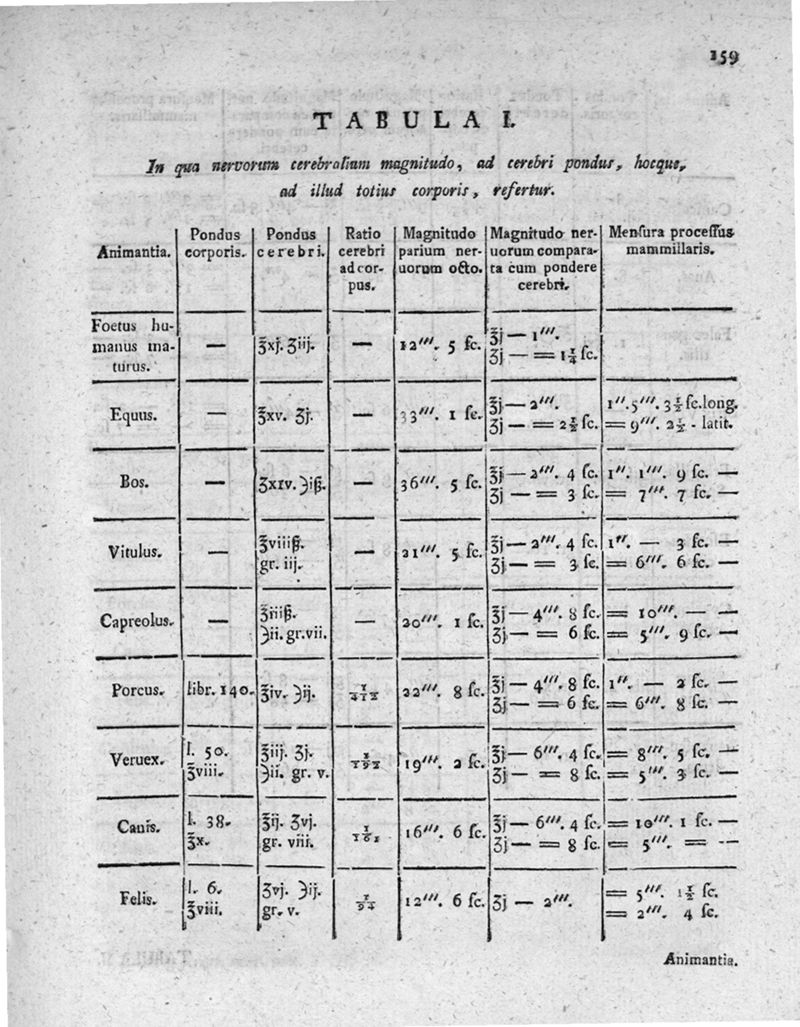 159
TABULA I.
In qua nervorum cerebralium magnitudo, ad cerebri pondus, hocque,
ad illud totius corporis, refertur.
Animantia. | Pondus corporis. | Pondus cerebri. | Ratio cerebri ad cor- pus. | Magnitudo parium ner- uorum octo. | Magnitudo ner- uorum compara- ta cum pondere cerebri. | Menſura proceſſus mammillaris.
Foetus hu- | — | ℥xj. ʒiij. | — | 12‴. 5 ſc. | ℥j — 1‴.
manus ma- | ʒj — = 1¼ ſc.
turus.
Equus. | — | ℥xv. ʒj. | — | 33‴. 1 ſc. | ℥j — 2‴. | 1″. 5‴. 3½ ſc. long.
ʒj — = 2½ ſc. | = 9‴. 2½ - latit.
Bos. | — | ʒxıv. ℈iß. | — | 36‴. 5 ſc. | ℥j — 2‴. 4 ſc. | 1″. 1‴. 9 ſc. —
ʒj — = 3 ſc. | = 7‴. 7 ſc. —
Vitulus. | — | ℥viiiß. | — | 21‴. 5 ſc. | ℥j — 2‴. 4 ſc. | 1″. — 3 ſc. —
gr. iij. | ʒj — = 3 ſc. | = 6‴. 6 ſc. —
Capreolus. | — | ℥iiiß. | — | 20‴. 1 ſc. | ℥j — 4‴. 8 ſc. | = 10‴. — —
℈ii. gr. vii. | ʒj — = 6 ſc. | = 5‴. 9 ſc. —
Porcus. | libr. 140. | ℥iv. ℈ij. | 1/412 | 22‴. 8 ſc. | ℥j — 4‴. 8 ſc. | 1″. — 2 ſc. —
ʒj — = 6 ſc. | = 6‴. 8 ſc. —
Veruex. | l. 50. | ℥iij. ʒj. | 1/192 | 19‴. 2 ſc. | ℥j — 6‴. 4 ſc. | = 8‴. 5 ſc. —
℥viii. | ℈ii. gr. v. | ʒj — = 8 ſc. | = 5‴. 3 ſc. —
Canis. | l. 38. | ℥ij. ʒvj. | 1/161 | 16‴. 6 ſc. | ℥j — 6‴. 4 ſc. | = 10‴. 1 ſc. —
℥x. | gr. viii. | ʒj — = 8 ſc. | = 5‴. = —
Felis. | l. 6. | ʒvj. ℈ij. | 1/94 | 12‴. 6 ſc. | ʒj — 2‴. | = 5‴. 1½ ſc.
℥viii. | gr. v. | = 2‴. 4 ſc.
Animantia.